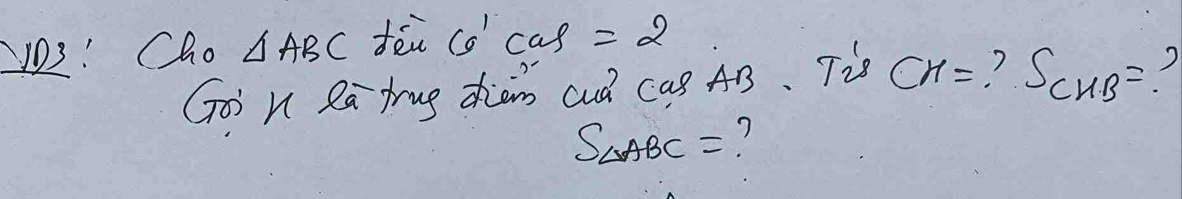 VD3: Cho ΔABC đều có cạh = 2.
Gọi H là trug điểm cuả cạh AB. Tíh CH = ? S_CHB = ?
S_ΔABC = ?